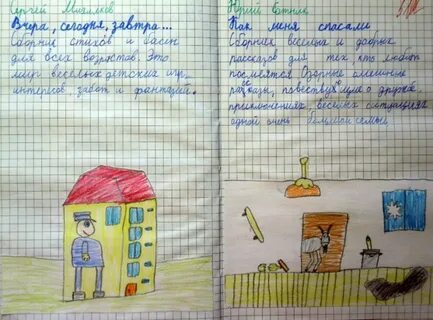 Сергей Михалков
Вчера, сегодня, завтра...
Сборник стихов и басен
для всех возрастов. Это
мир веселых детских игр,
интересов, забот и фантазий.
Юрий
Как меня спасали
Сборник веселых и добрых
рассказов для тех кто любит
посмеяться Озорные смешные
рассказы, повествующие о дружбе,
приключениях, веселых ситуациях
одной очень большой семьи